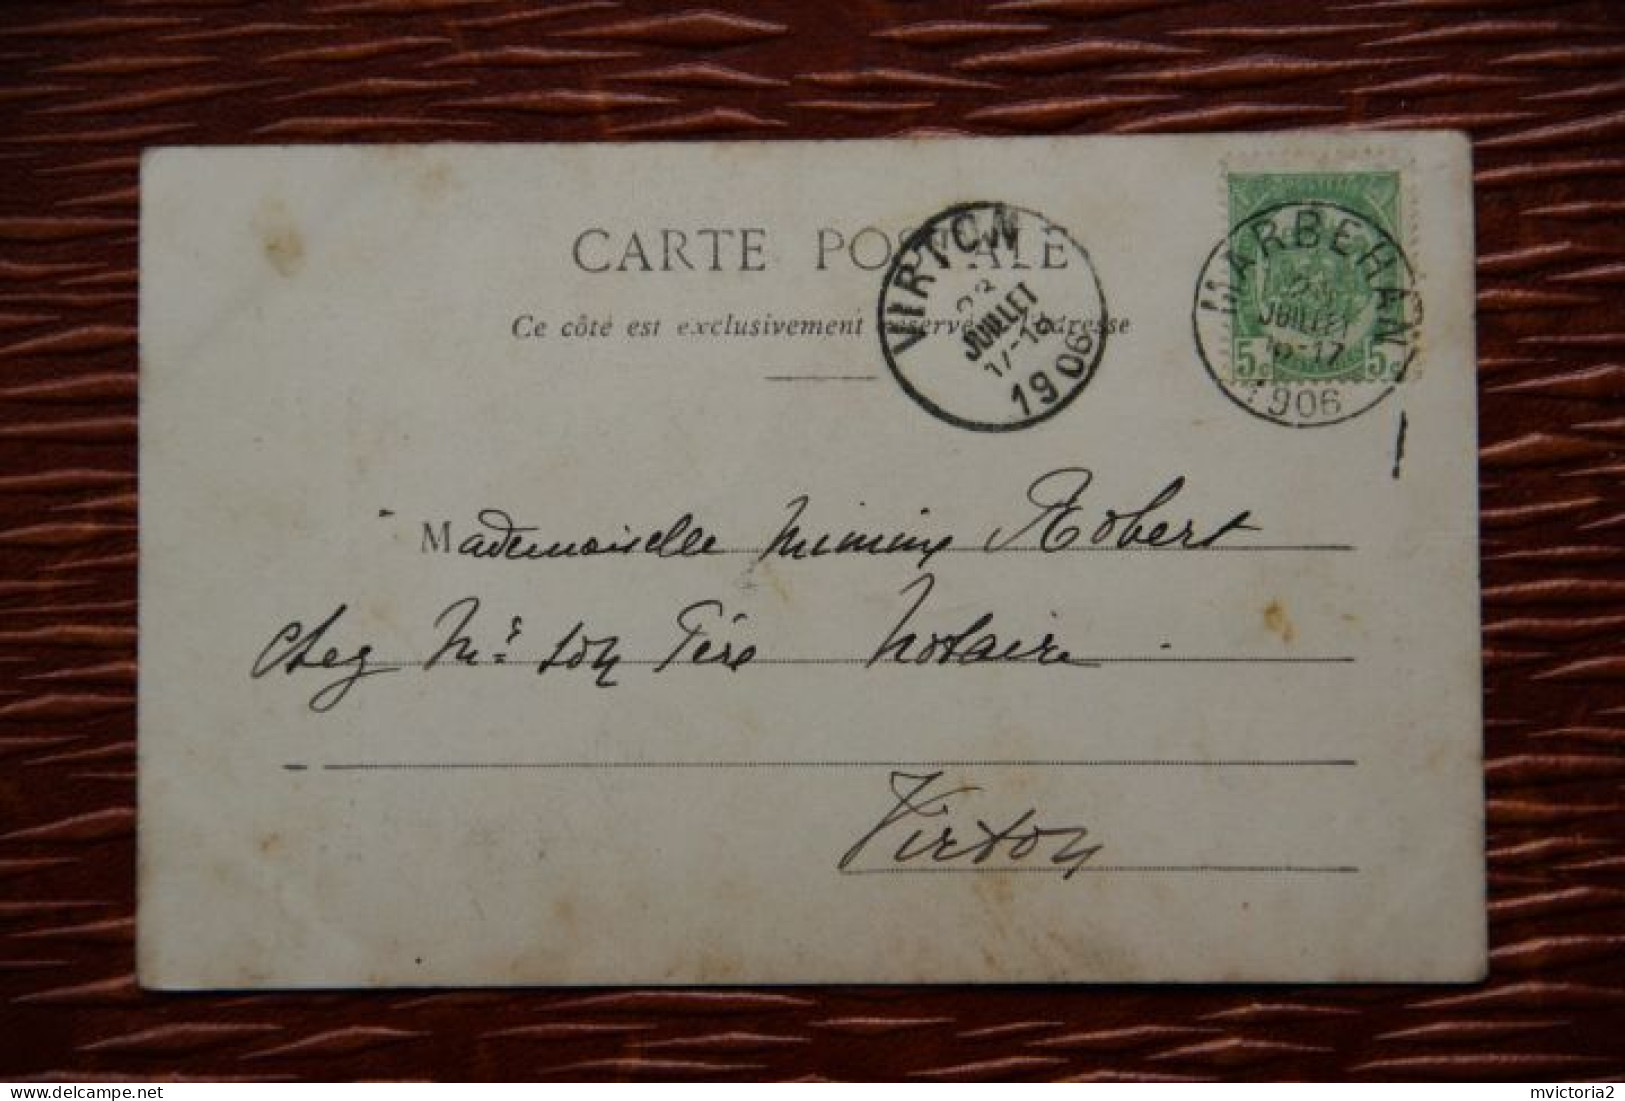 CARTE POSTALE
Ce côté est exclusivement réservé à l'adresse
VIRTON
23
JUILLET
17-18
1906
MARBEHAN
JUILLET
16-17
1906
5c 5c
Mademoiselle Mimine Robert
chez Mr son Père Notaire
Virton
mvictoria2